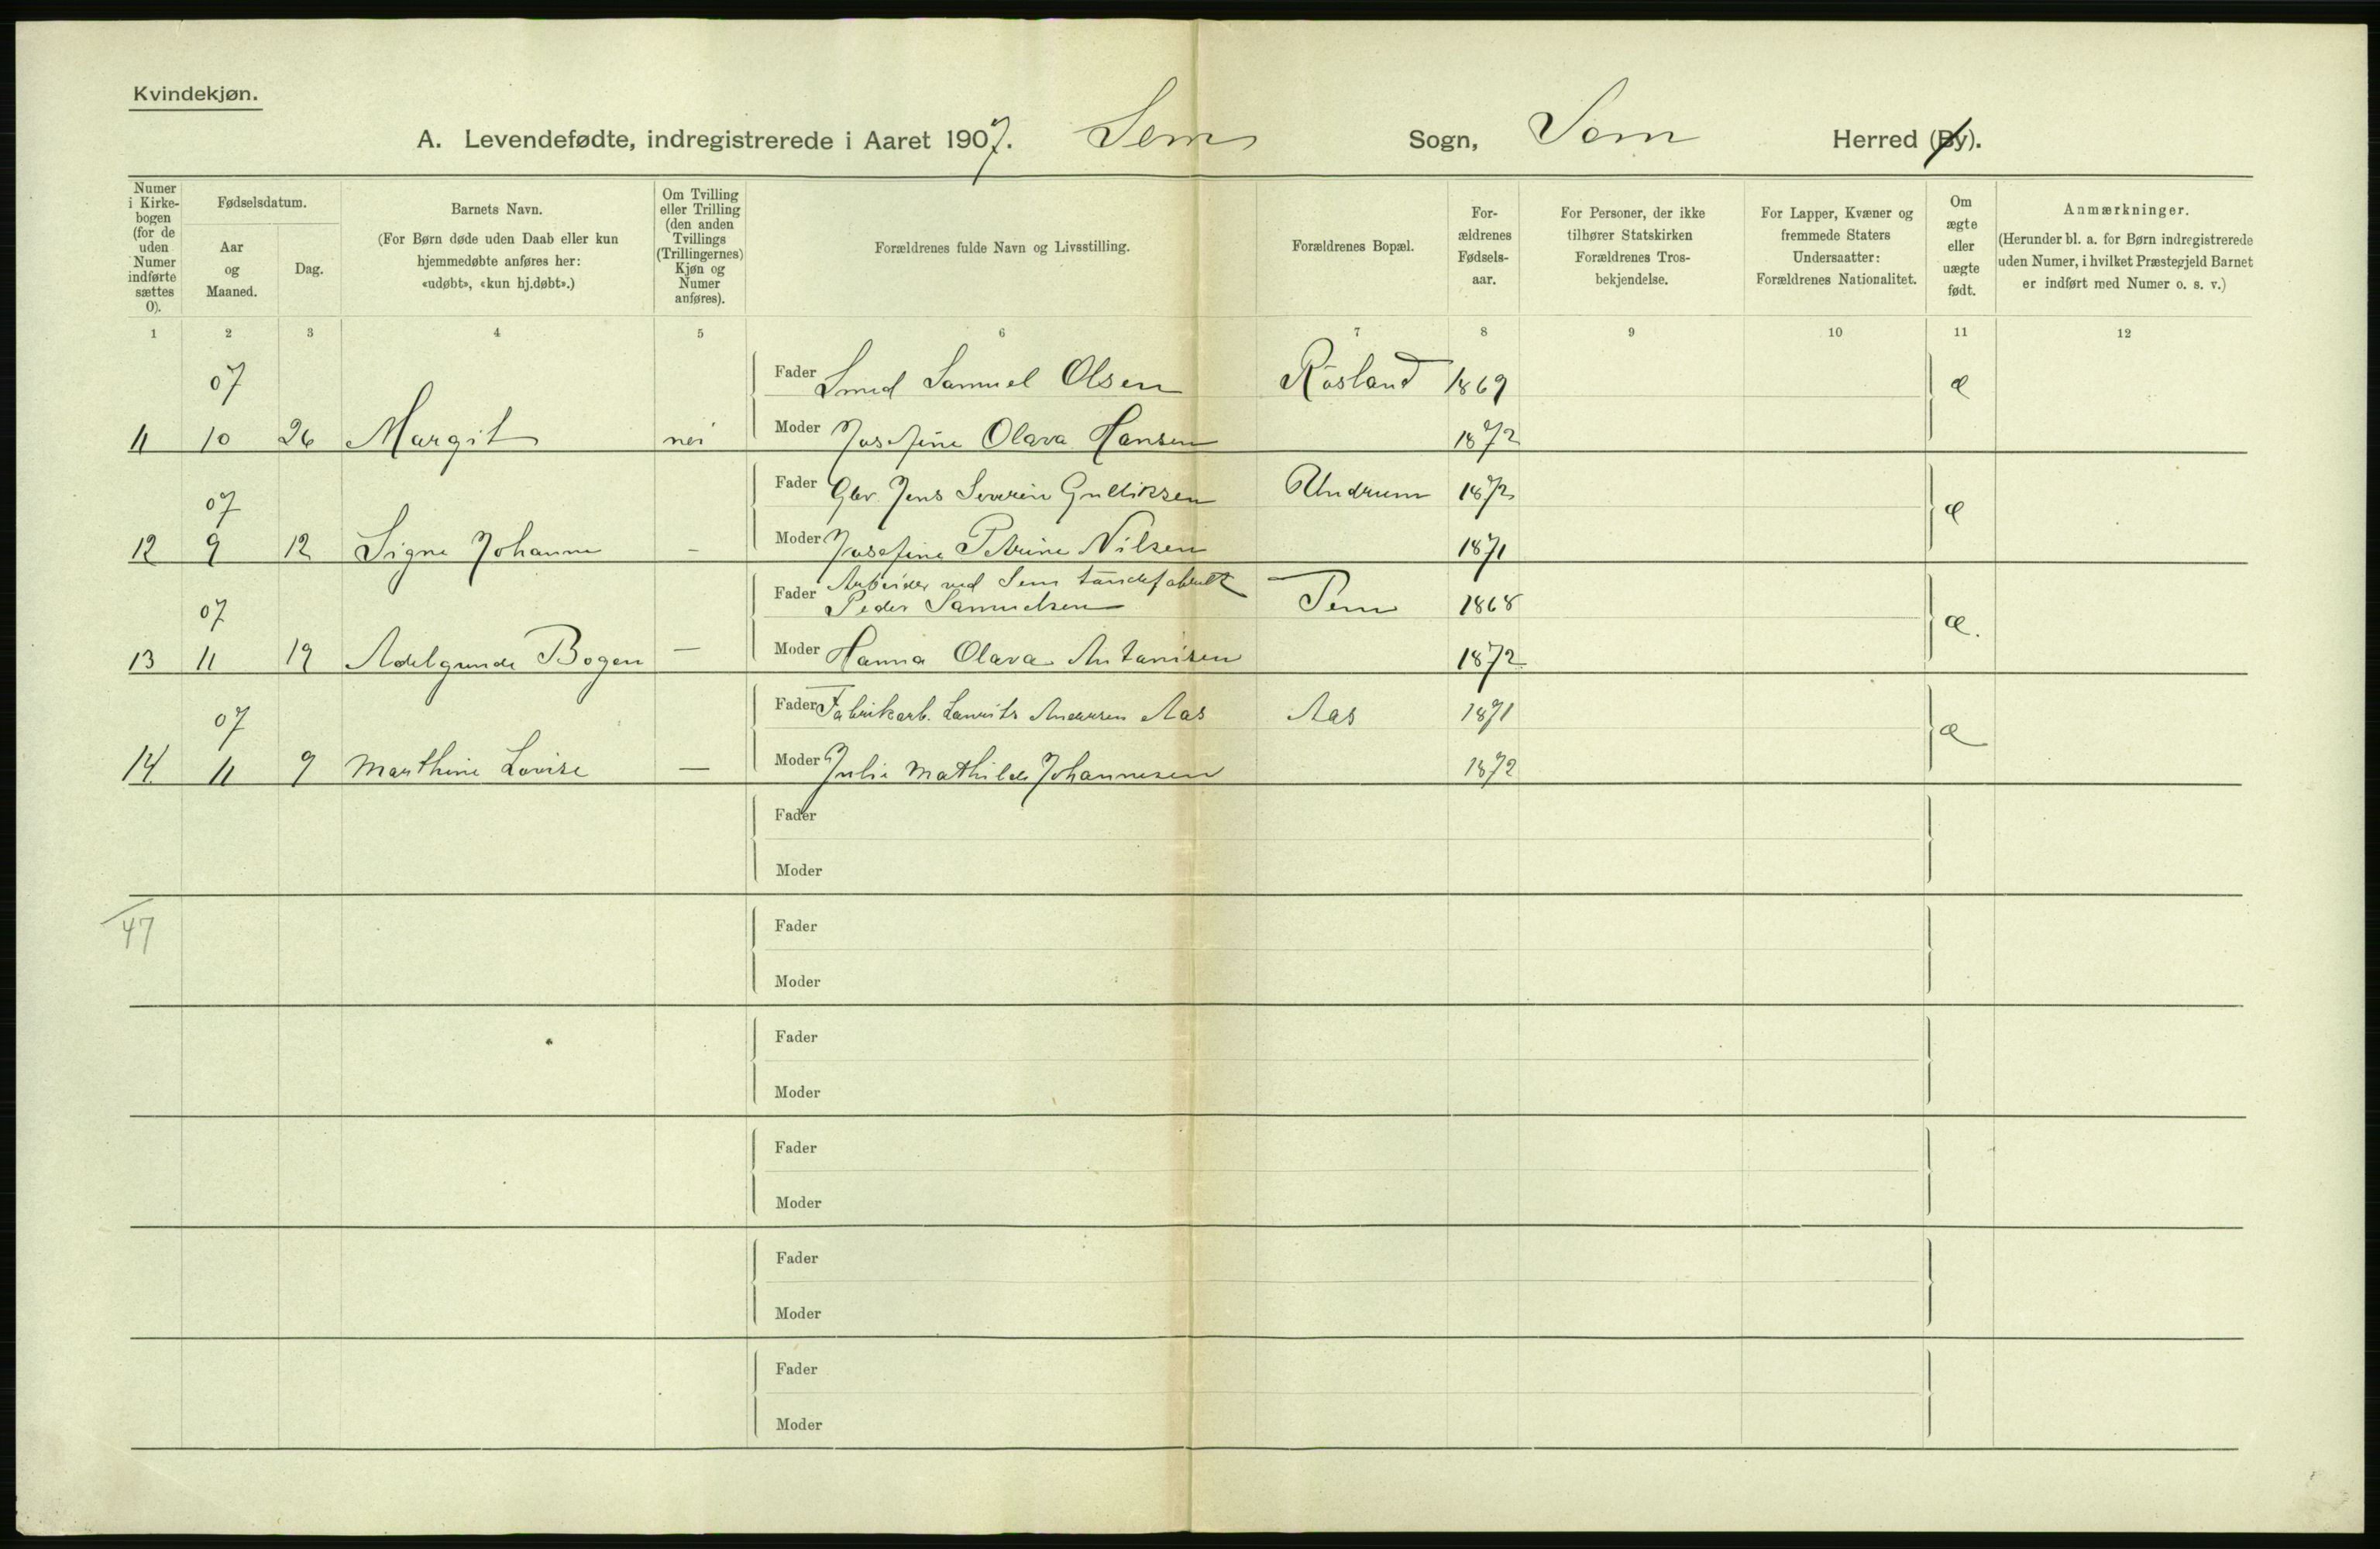 Kvindekjøn.
A. Levendefødte, indregistrerede i Aaret 1907. Sem Sogn, Sem Herred (By).
Numer i Kirke-bogen (for de uden Numer indførte sættes 0).
Fødselsdatum.
Aar og Maaned.
Dag.
Barnets Navn.
(For Børn døde uden Daab eller kun hjemmedøbte anføres her: «udøbt», «kun hj.døbt».)
Om Tvilling eller Trilling (den anden Tvillings (Trillingernes) Kjøn og Numer anføres).
Forældrenes fulde Navn og Livsstilling.
Forældrenes Bopæl.
For-ældrenes Fødsels-aar.
For Personer, der ikke tilhører Statskirken Forældrenes Tros-bekjendelse.
For Lapper, Kvæner og fremmede Staters Undersaatter: Forældrenes Nationalitet.
Om ægte eller uægte født.
Anmærkninger.
(Herunder bl. a. for Børn indregistrerede uden Numer, i hvilket Præstegjeld Barnet er indført med Numer o. s. v.)
1 2 3 4 5 6 7 8 9 10 11 12
07 Fader Smed Samuel Olsen Råsland 1869 æ
11 10 26 Margit nei Moder Josefine Olava Hansen 1872
07 Fader Gbr. Jens Severin Gulliksen Undrum 1872 æ
12 9 12 Signe Johanne – Moder Josefine Petrine Nilsen 1871
Fader Arbeider ved Sem tøndefabrik
07 Peder Samuelsen Sem 1868 æ.
13 11 19 Adelgunde Bogen – Moder Hanna Olava Antonisen 1872
07 Fader Fabrikarb. Laurits Andersen Aas Aas 1871 æ
14. 11 9 Marthine Lovise – Moder Julie Mathilde Johannesen 1872
Fader
Moder
47 Fader
Moder
Fader
Moder
Fader
Moder
Fader
Moder
Fader
Moder